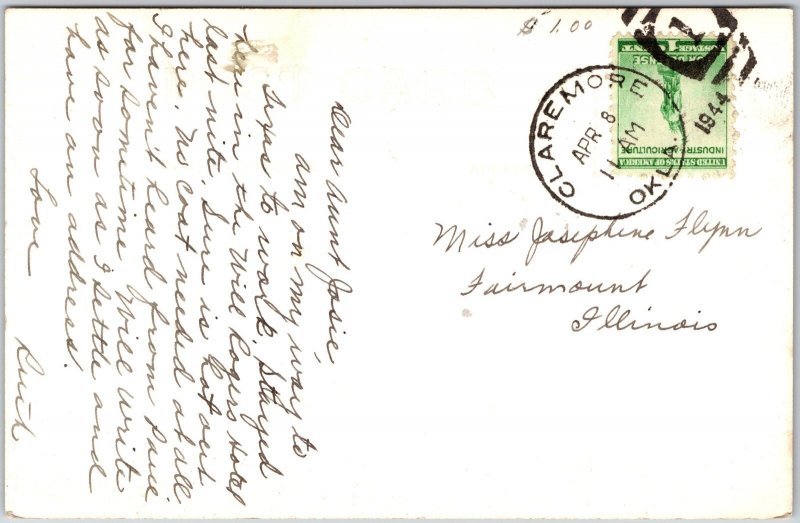 $ 1.00
1
UNITED STATES OF AMERICA
INDUSTRY-AGRICULTURE
FOR DEFENSE
1 POSTAGE CENT 1
CLAREMORE
APR 8
11 AM
1944
OKLA.
Dear Aunt Josie,
am on my way to
Texas to work. Stayed
here in the Will Rogers Hotel
last nite. Sure is hot out
here. No coat needed at all.
I haven't heard from Dave
for sometime. Will write
as soon as I settle and
have an address.
Love
Ruth
Miss Josephine Flynn
Fairmount
Illinois